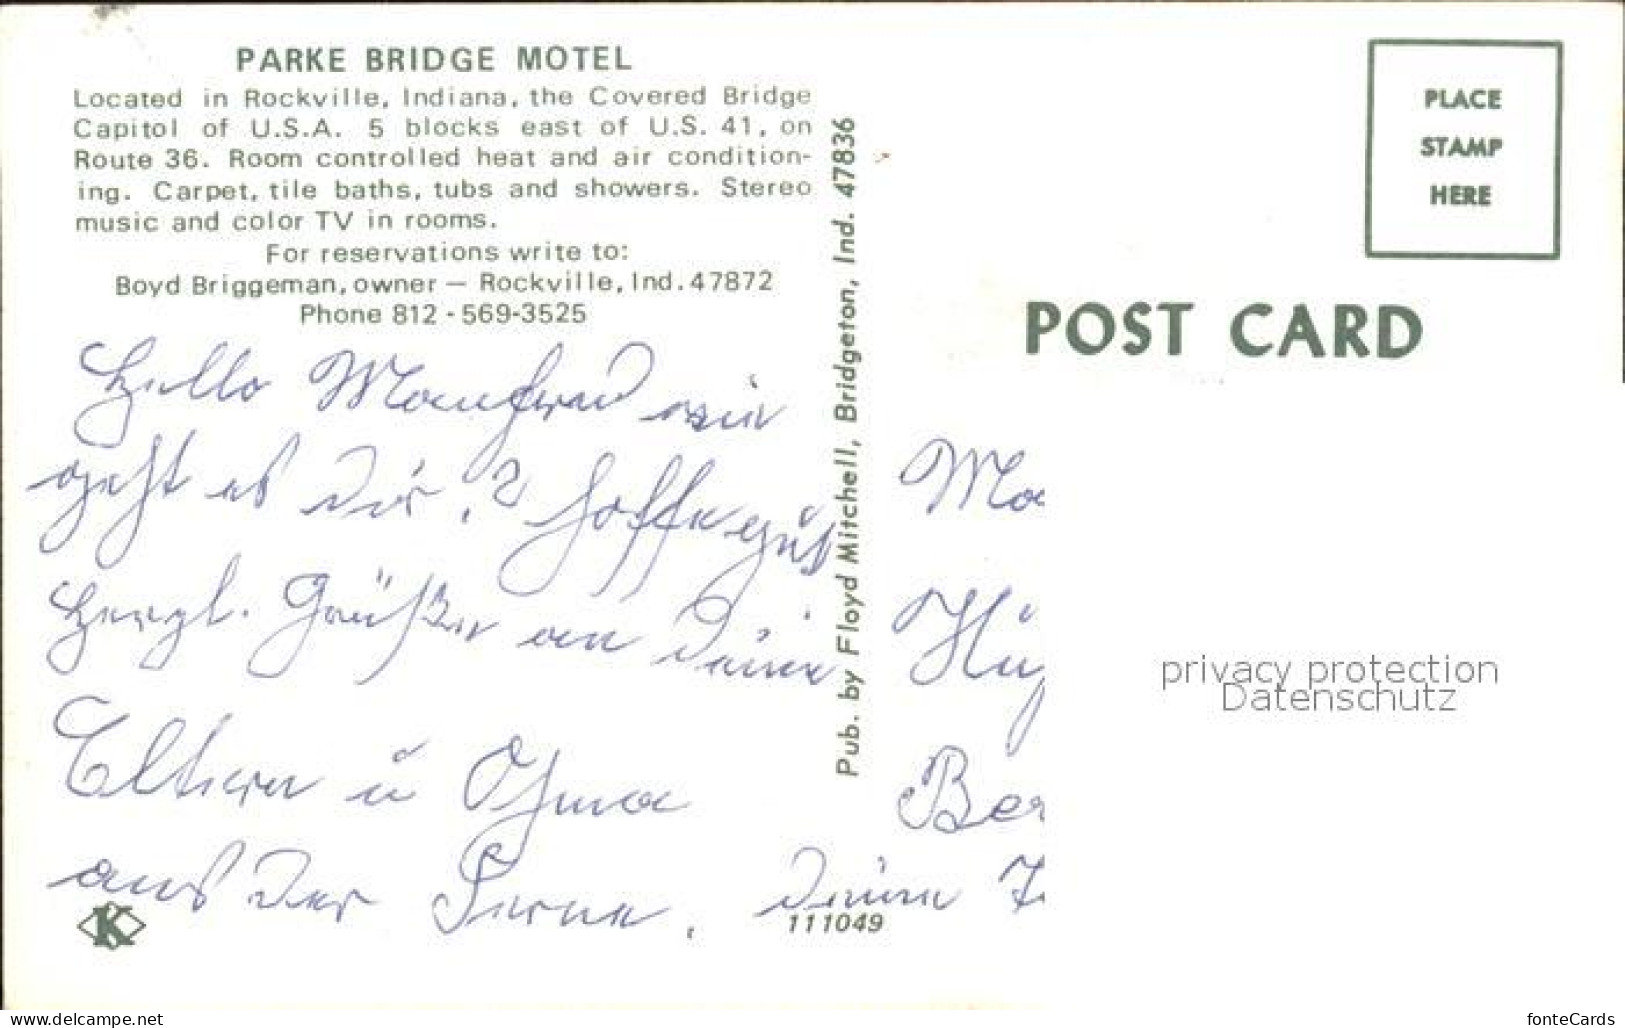 PARKE BRIDGE MOTEL
Located in Rockville, Indiana, the Covered Bridge
Capitol of U.S.A. 5 blocks east of U.S. 41, on
Route 36. Room controlled heat and air condition-
ing. Carpet, tile baths, tubs and showers. Stereo
music and color TV in rooms.
For reservations write to:
Boyd Briggeman, owner — Rockville, Ind. 47872
Phone 812 - 569-3525
Hallo Manfred wie
geht es Dir? Hoffe gut
Herzl. Grüße an Deine
Eltern u Oma
aus der Ferne. Deine
K
111049
Pub. by Floyd Mitchell, Bridgeton, Ind. 47836
PLACE
STAMP
HERE
POST CARD
Ma
Ber
privacy protection
Datenschutz
www.delcampe.net
fonteCards